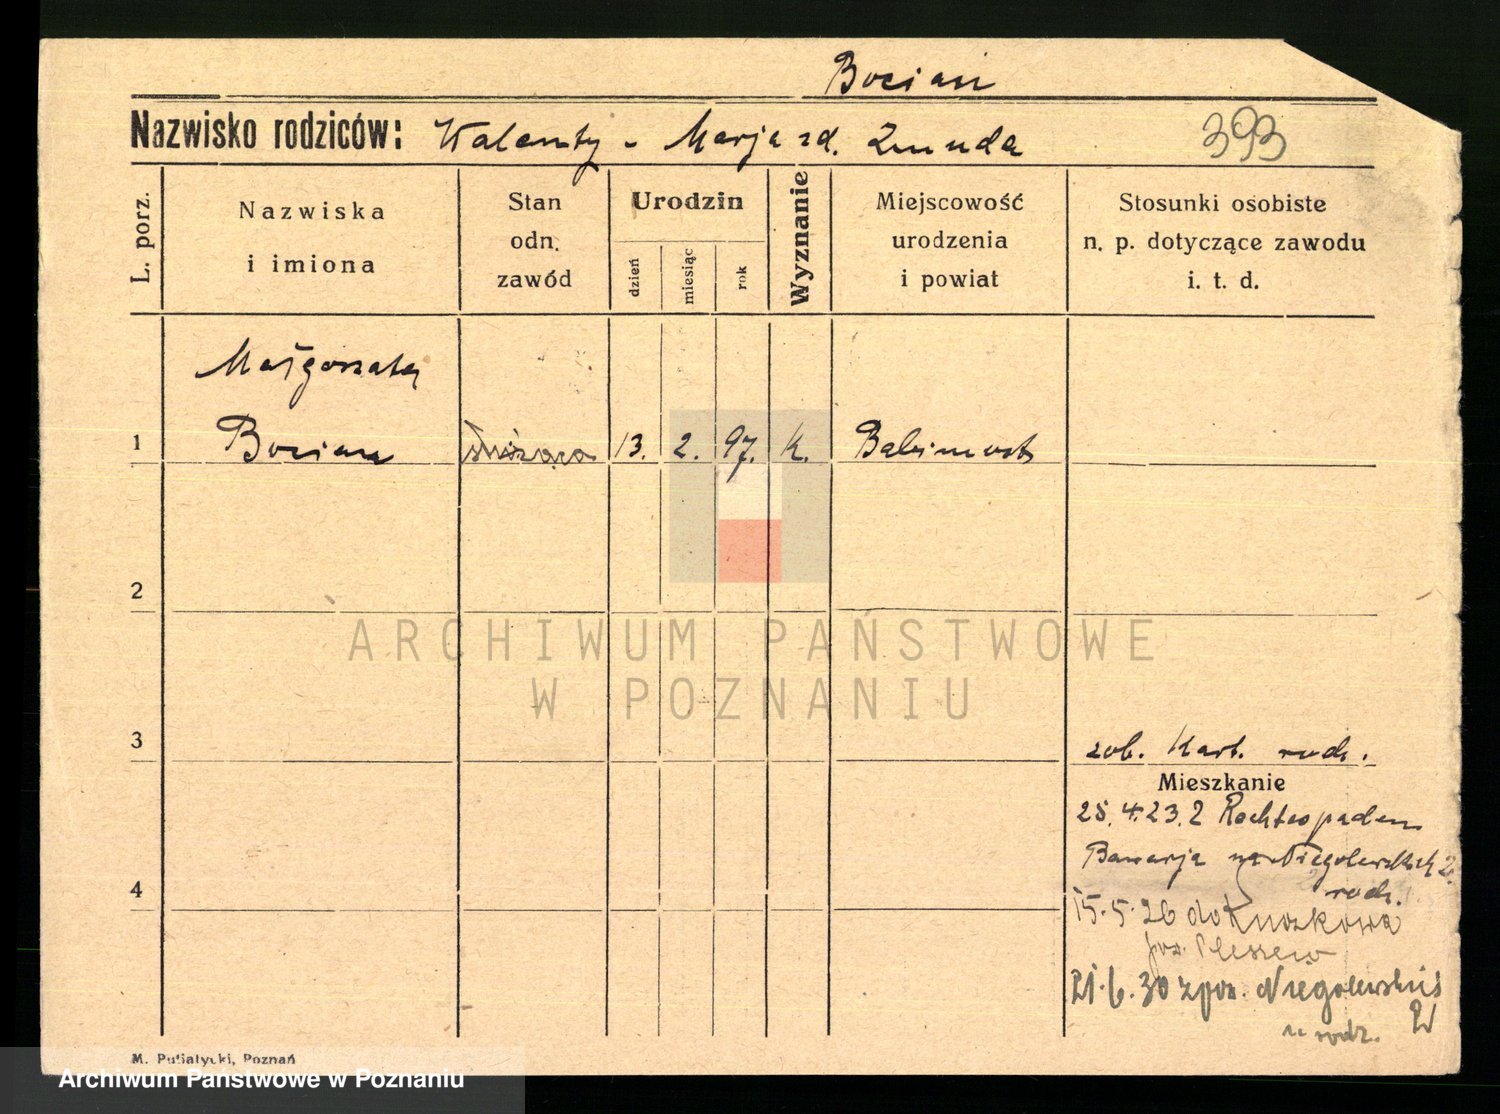 Bocian
Nazwisko rodziców: Walenty - Marja zd. Zmuda
393
L. porz.
Nazwiska
i imiona
Stan
odn.
zawód
Urodzin
dzień
miesiąc
rok
Wyznanie
Miejscowość
urodzenia
i powiat
Stosunki osobiste
n. p. dotyczące zawodu
i. t. d.
Małgorzata
1 Bocian służąca 13. 2. 97. K. Babimost
2
ARCHIWUM PAŃSTWOWE
W POZNANIU
3
zob. Kart. rodz.
Mieszkanie
25.4.23. z
Bawarja Niegolewskich 2.
4
rodz.
15.5.26 do
pow. Pleszew
21.6.30 z pow. Niegolewskich
u rodz.
M. Putiatycki, Poznań
Archiwum Państwowe w Poznaniu